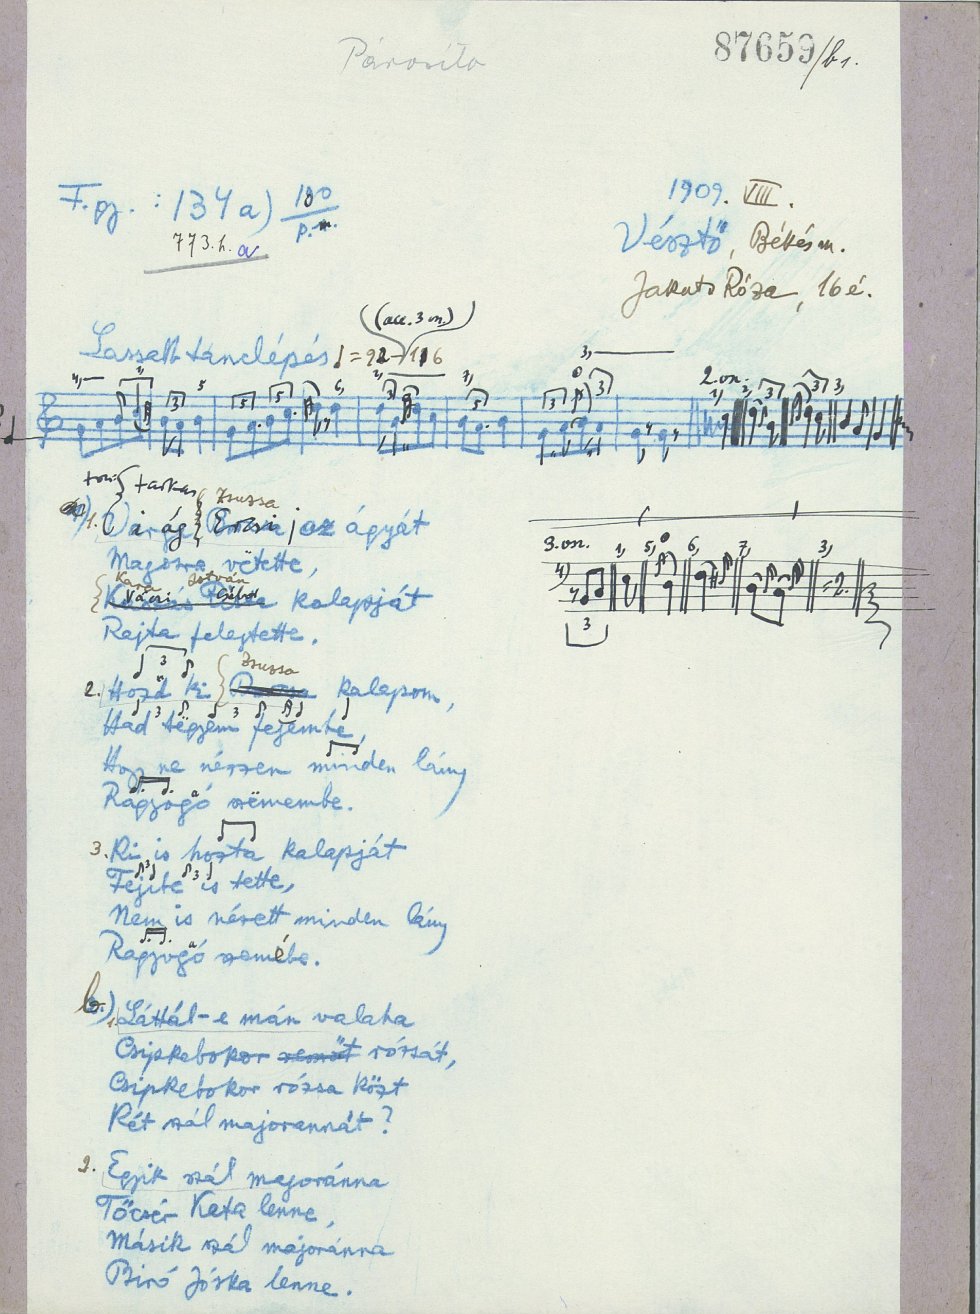 Párosító
87659/b1.
F. gy. : 134 a) 180/p.m.
773.h. a
1909. VIII.
Vésztő, Békés m.
Jakuts Róza, 16 é.
((acc. 3 vn.))
Lassabb tánclépés ♩ = 92–116
2. vn.
3. vn.
tarkas
Zsuzsa
1. Virág Erzsi az ágyát
Magosra vetette,
István
Váci Gábor kalapját
Rajta felejtette.
Zsuzsa
2. Hozd ki kalapom,
Had tëgyem fejembe,
Hogy ne nézzen minden lány
Ragyogó szëmembe.
3. Ki is hozta kalapját
Fejibe is tette,
Nem is nézett minden lány
Ragyogó szemébe.
b.) 1. Láttál-e mán valaha
Csipkebokor rózsát,
Csipkebokor rózsa közt
Két szál majorannát?
2. Egyik szál majoránna
Tőcsér Kata lenne,
Másik szál majoránna
Biró Jóska lenne.